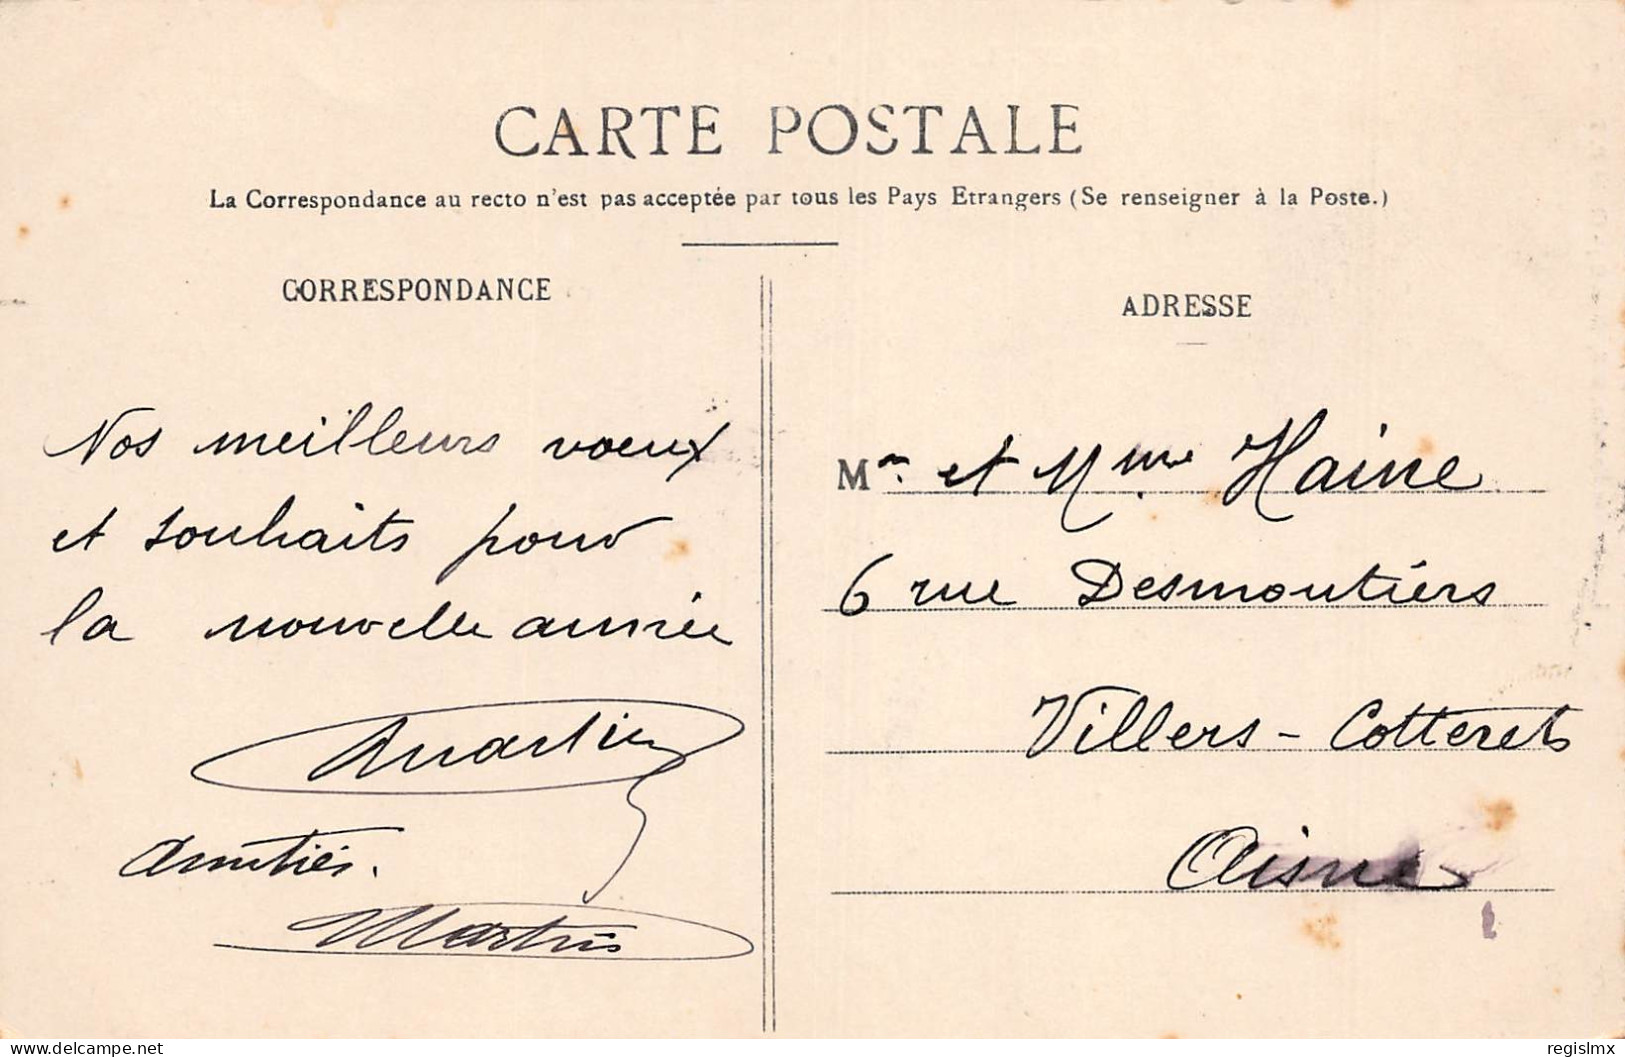 CARTE POSTALE
La Correspondance au recto n'est pas acceptée par tous les Pays Etrangers (Se renseigner à la Poste.)
CORRESPONDANCE
Nos meilleurs voeux
et souhaits pour
la nouvelle année
Martin
Amitiés.
ADRESSE
Mr. et Mme Haine
6 rue Desmoutiers
Villers-Cotterets
Aisne
regislmx